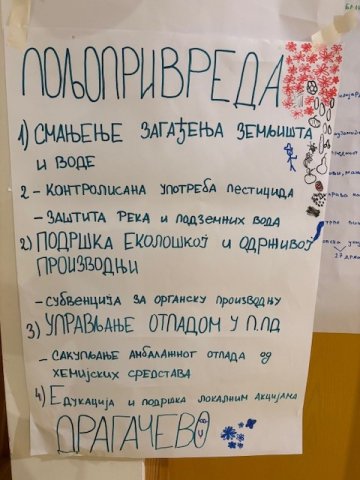 ПОЉОПРИВРЕДА
1) СМАЊЕЊЕ ЗАГАЂЕЊА ЗЕМЉИШТА
И ВОДЕ
2 - КОНТРОЛИСАНА УПОТРЕБА ПЕСТИЦИДА
- ЗАШТИТА РЕКА И ПОДЗЕМНИХ ВОДА
2) ПОДРШКА ЕКОЛОШКОЈ И ОДРЖИВОЈ
ПРОИЗВОДЊИ
- СУБВЕНЦИЈА ЗА ОРГАНСКУ ПРОИЗВОДЊУ
3) УПРАВЉАЊЕ ОТПАДОМ У П.ПД
- САКУПЉАЊЕ АМБАЛАЖНОГ ОТПАДА ОД
ХЕМИЈСКИХ СРЕДСТАВА
4) ЕДУКАЦИЈА И ПОДРШКА ЛОКАЛНИМ АКЦИЈАМА
ДРАГАЧЕВО